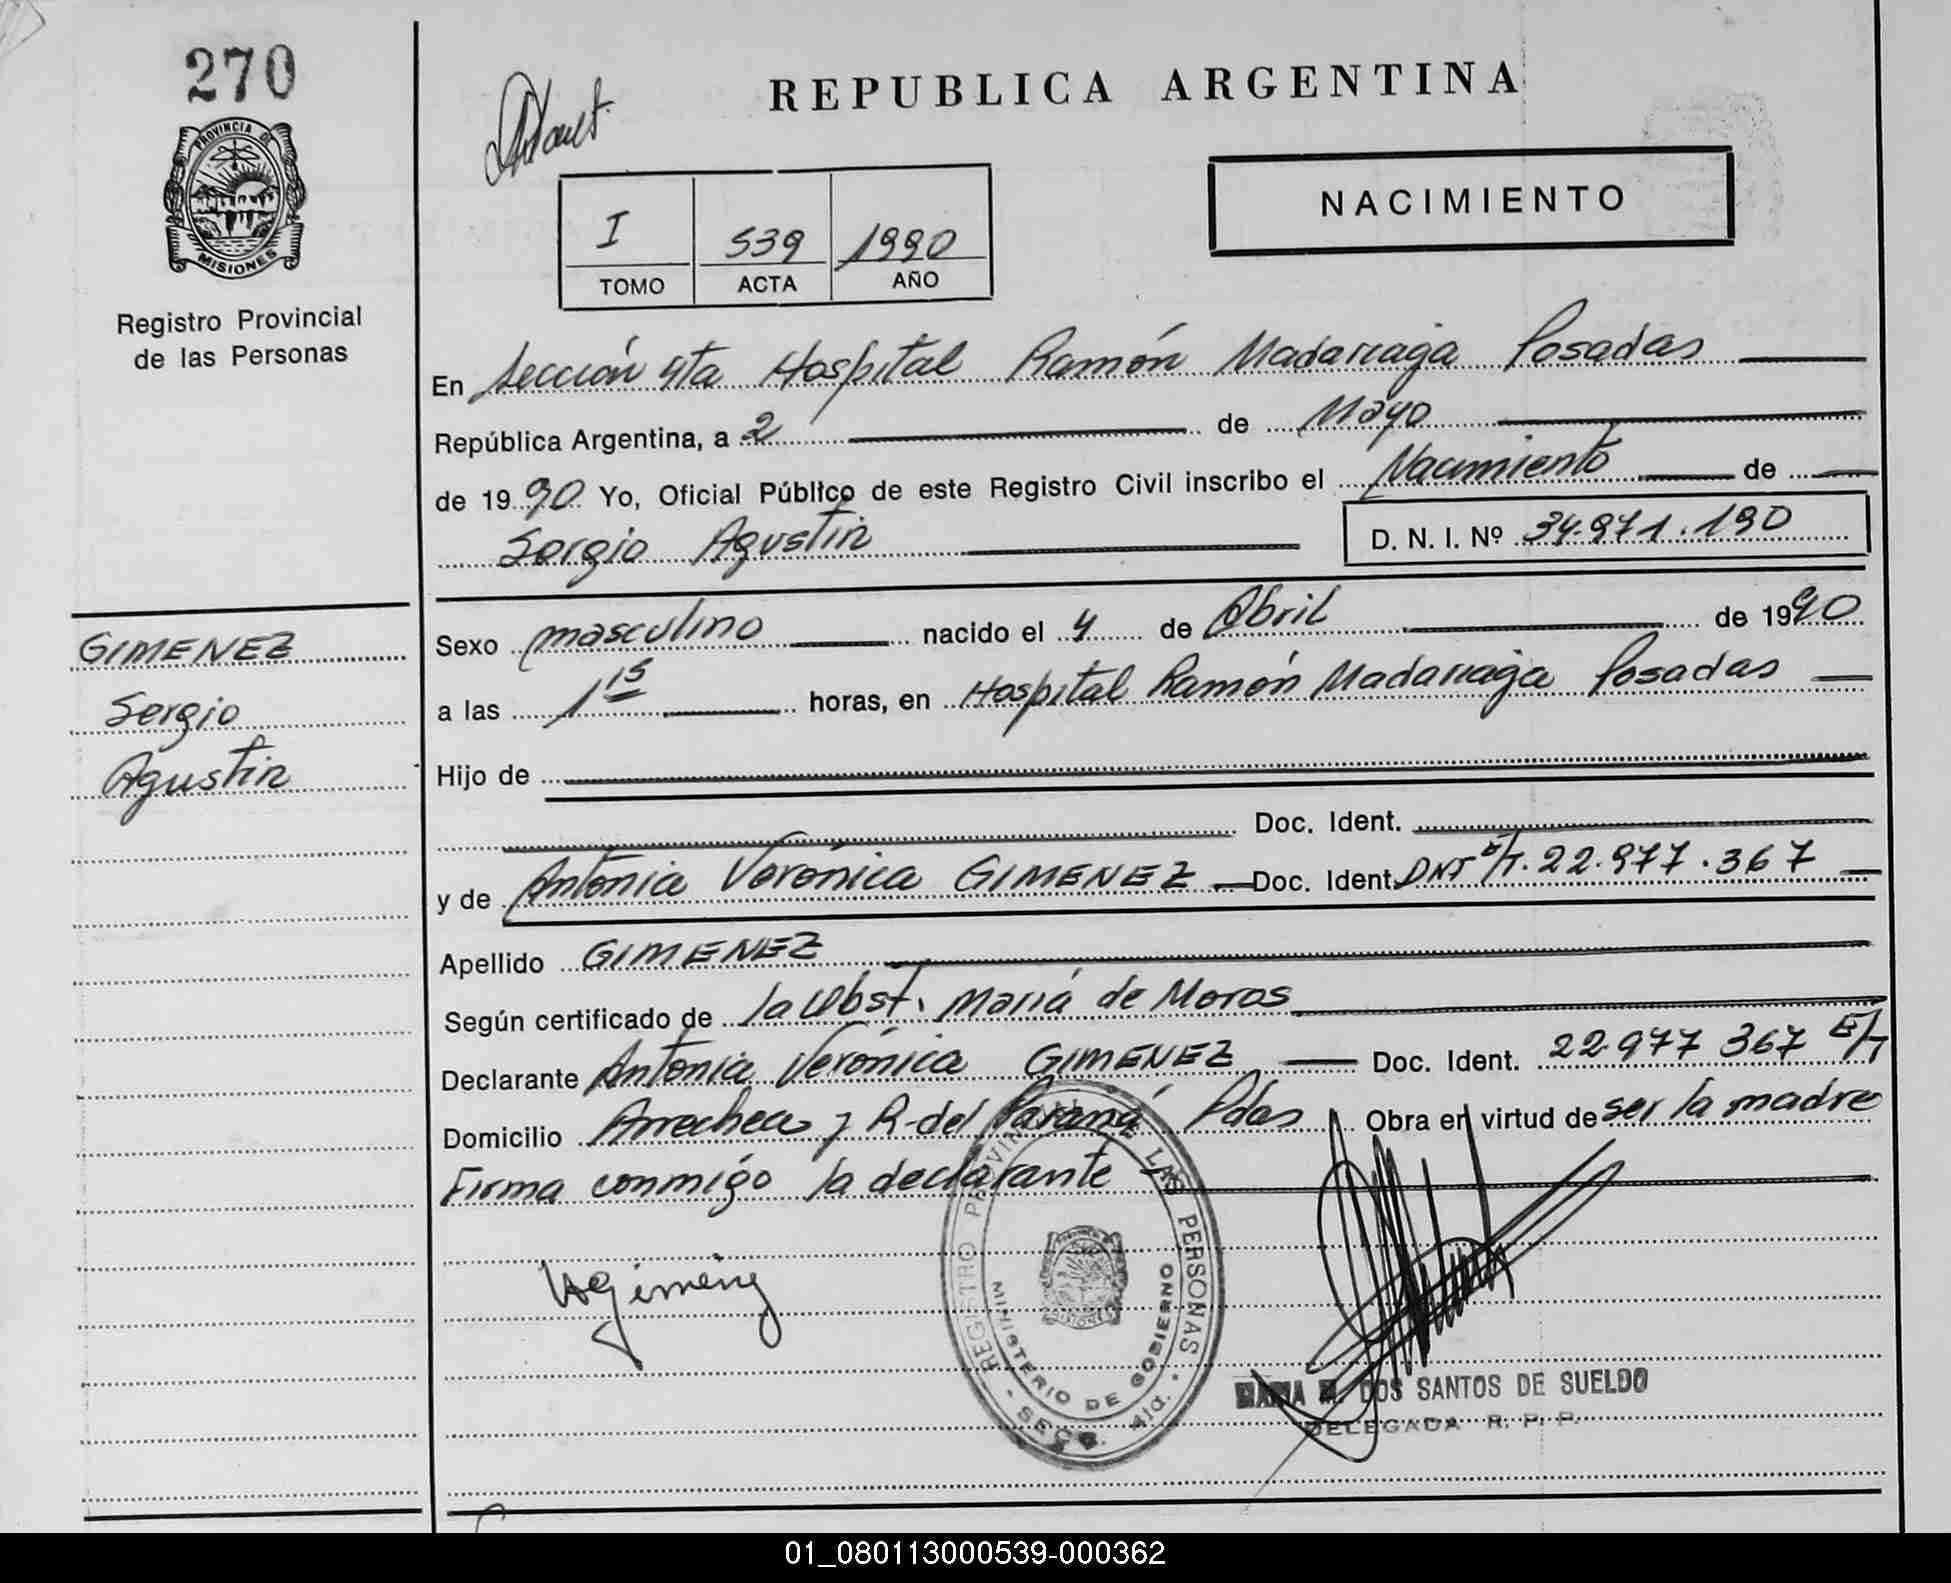 270
REPUBLICA ARGENTINA
PROVINCIA DE
MISIONES
NACIMIENTO
I 539 1990
TOMO ACTA AÑO
Registro Provincial
de las Personas
En Sección 4ta Hospital Ramón Madariaga Posadas
República Argentina, a 2 de Mayo
de 1990 Yo, Oficial Público de este Registro Civil inscribo el Nacimiento de
Sergio Agustin D. N. I. Nº 34.971.190
GIMENEZ
Sergio
Agustin
Sexo masculino nacido el 4 de Abril de 1990
a las 1 15 horas, en Hospital Ramón Madariaga Posadas
Hijo de
Doc. Ident.
y de Antonia Verónica GIMENEZ Doc. Ident. DNI E/T. 22.977.367
Apellido GIMENEZ
Según certificado de la Obst. María de Moros
Declarante Antonia Verónica GIMENEZ Doc. Ident. 22.977 367 E/T
Domicilio Arrechea y R. del Paraná Pdas Obra en virtud de ser la madre
Firma conmigo la declarante
VAGimenez
REGISTRO PROVINCIAL LAS PERSONAS
MINISTERIO DE GOBIERNO
SECC. 4ta.
MISIONES
MARIA DOS SANTOS DE SUELDO
DELEGADA R. P. P.
01_080113000539-000362